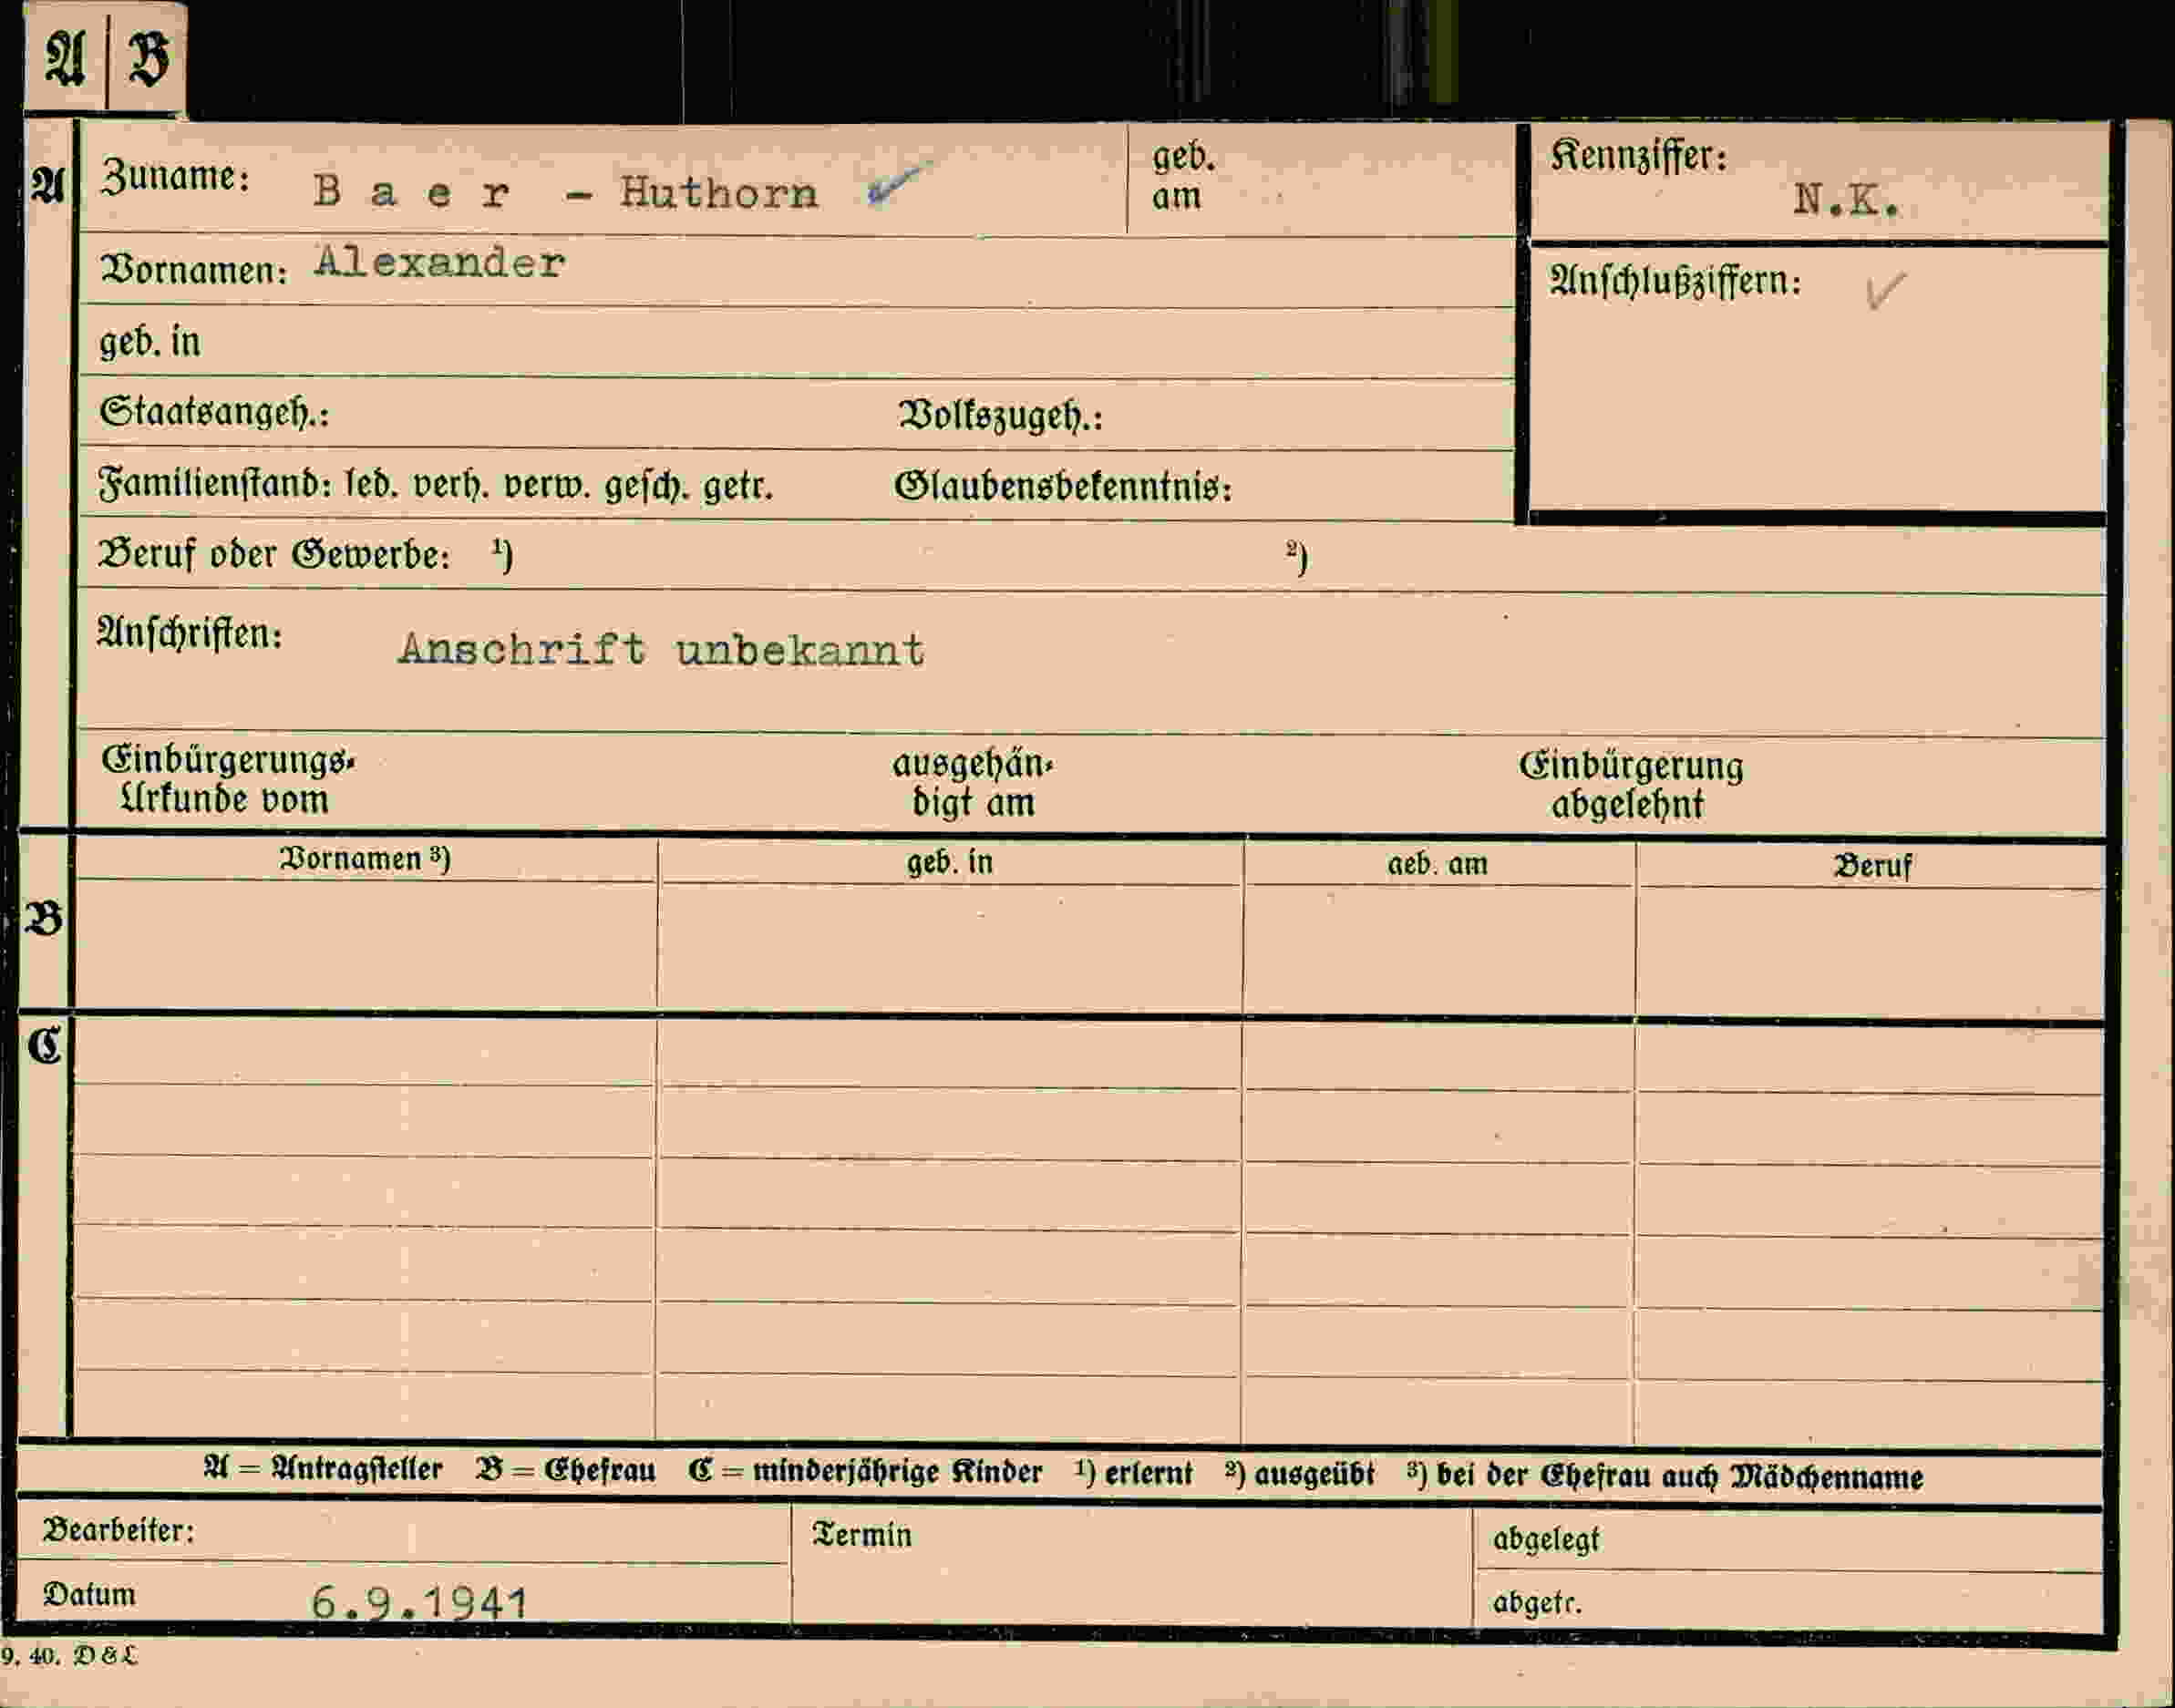 A | B
A Zuname: B a e r - Huthorn ✓
geb. am
Kennziffer: N.K.
Vornamen: Alexander
Anschlußziffern: ✓
geb. in
Staatsangeh.: Volkszugeh.:
Familienstand: led. verh. verw. gesch. getr. Glaubensbekenntnis:
Beruf oder Gewerbe: ¹) ²)
Anschriften: Anschrift unbekannt
Einbürgerungs- ausgehän- Einbürgerung
Urkunde vom digt am abgelehnt
Vornamen ³) geb. in geb. am Beruf
B
C
A = Antragsteller B = Ehefrau C = minderjährige Kinder ¹) erlernt ²) ausgeübt ³) bei der Ehefrau auch Mädchenname
Bearbeiter: Termin abgelegt
Datum 6.9.1941 abgetr.
9. 40. D & L